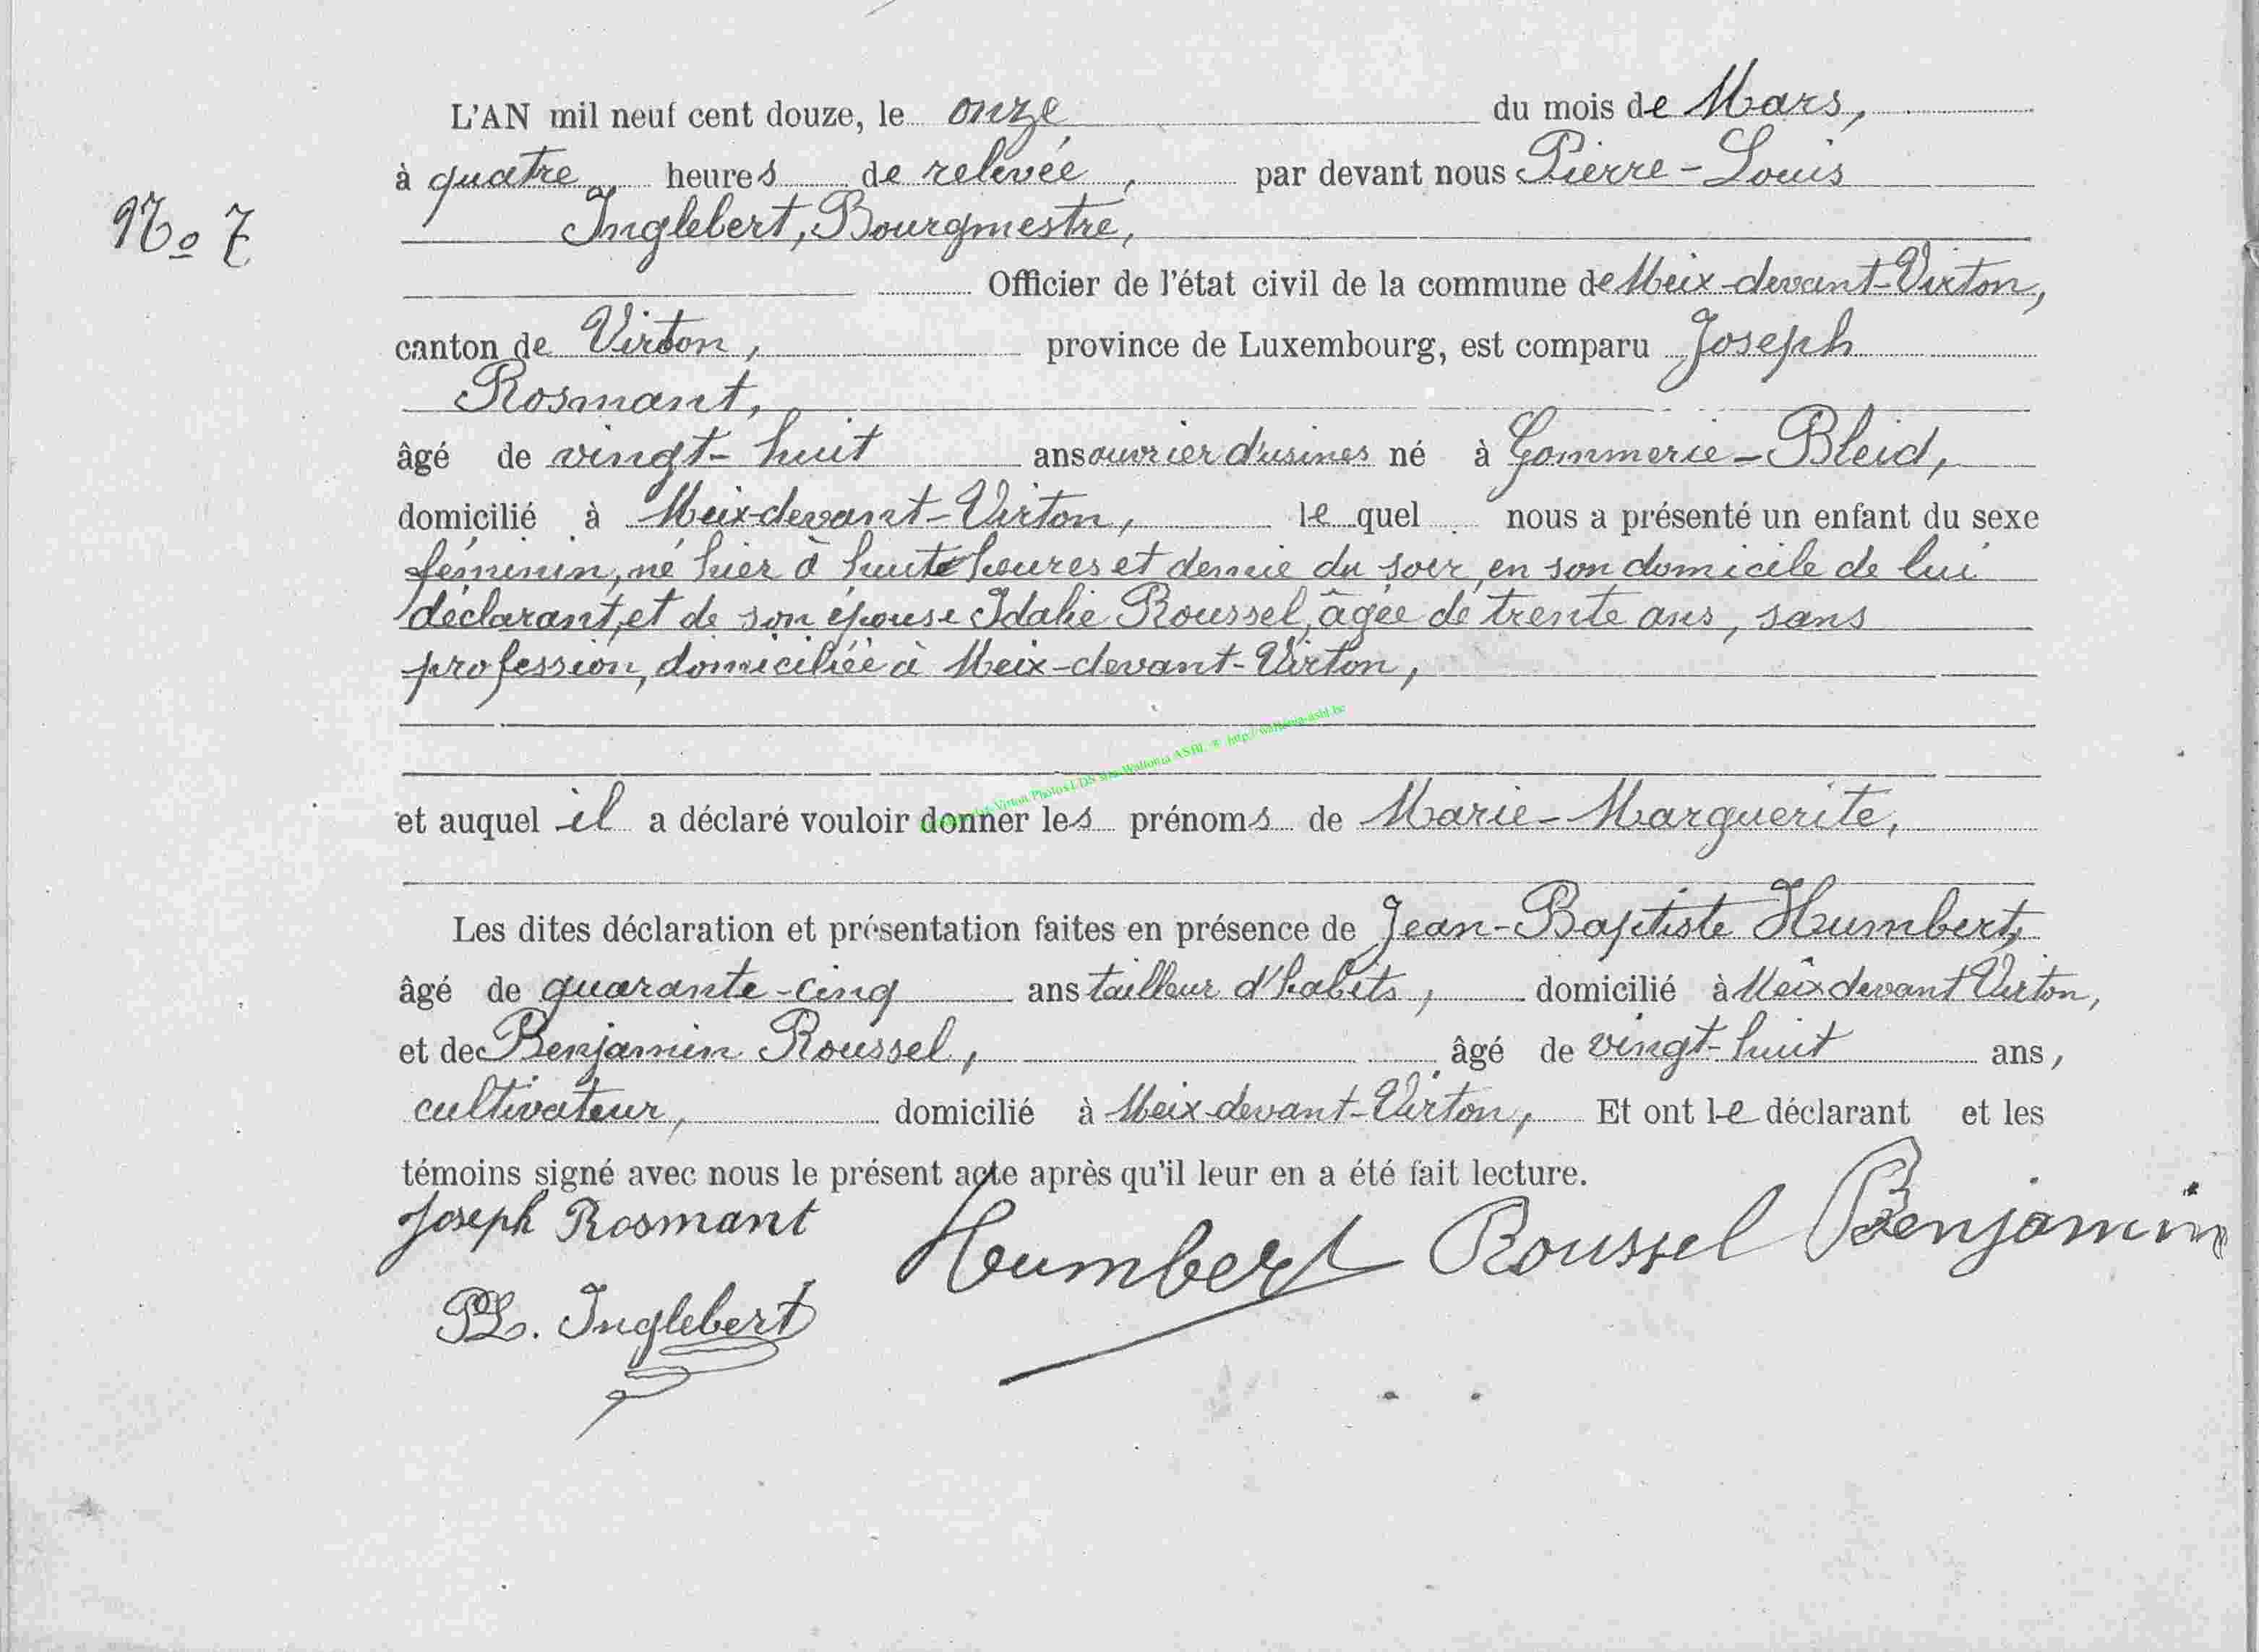 L'AN mil neuf cent douze, le onze du mois de Mars,
à quatre heures de relevée, par devant nous Pierre-Louis
No 7
Inglebert, Bourgmestre,
Officier de l'état civil de la commune de Meix-devant-Virton,
canton de Virton, province de Luxembourg, est comparu Joseph
Rosmant,
âgé de vingt-huit ans ouvrier d'usines né à Gommerie-Bleid,
domicilié à Meix-devant-Virton, lequel nous a présenté un enfant du sexe
féminin, né hier à huit heures et demie du soir, en son domicile de lui
déclarant, et de son épouse Idalie Roussel, âgée de trente ans, sans
profession, domiciliée à Meix-devant-Virton,
et auquel il a déclaré vouloir donner les prénoms de Marie-Marguerite,
Les dites déclaration et présentation faites en présence de Jean-Baptiste Humbert,
âgé de quarante-cinq ans tailleur d'habits, domicilié à Meix devant Virton,
et de Benjamin Roussel, âgé de vingt-huit ans,
cultivateur, domicilié à Meix-devant-Virton, Et ont le déclarant et les
témoins signé avec nous le présent acte après qu'il leur en a été fait lecture.
Joseph Rosmant Humbert Roussel Benjamin
PL. Inglebert